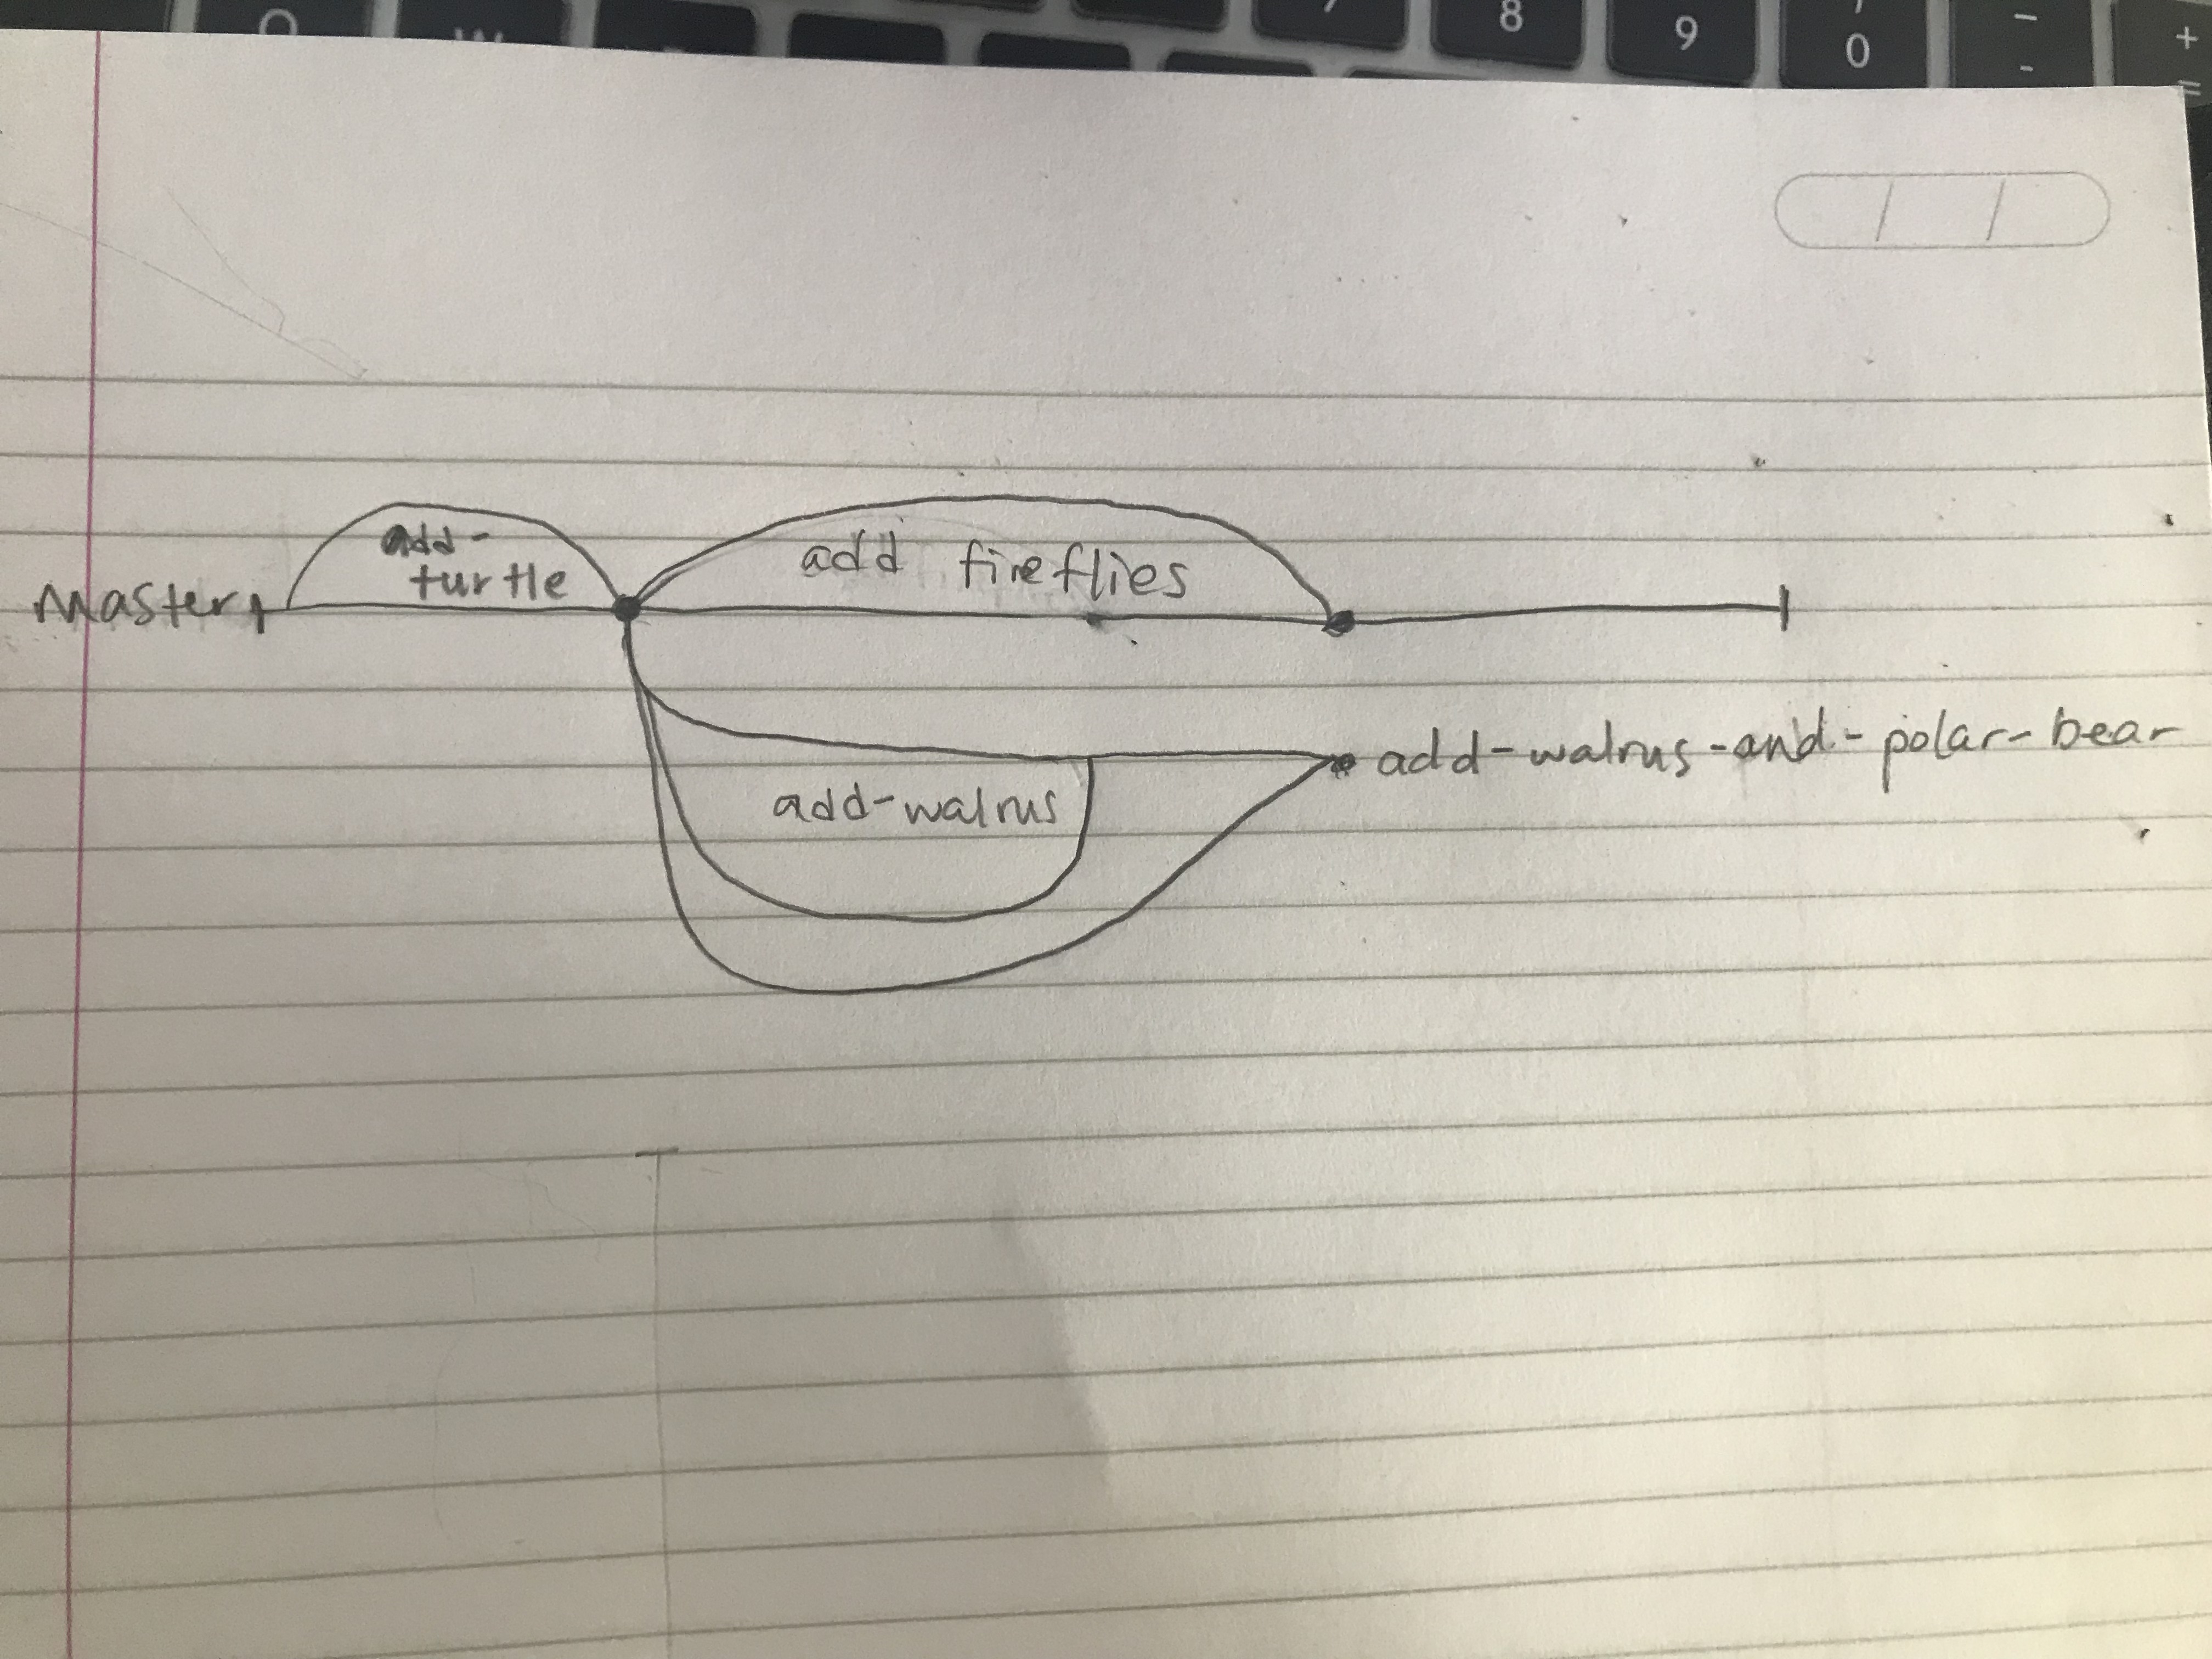 master
add-
turtle
add fireflies
add-walrus
add-walrus-and-polar-bear
7
8
9
0